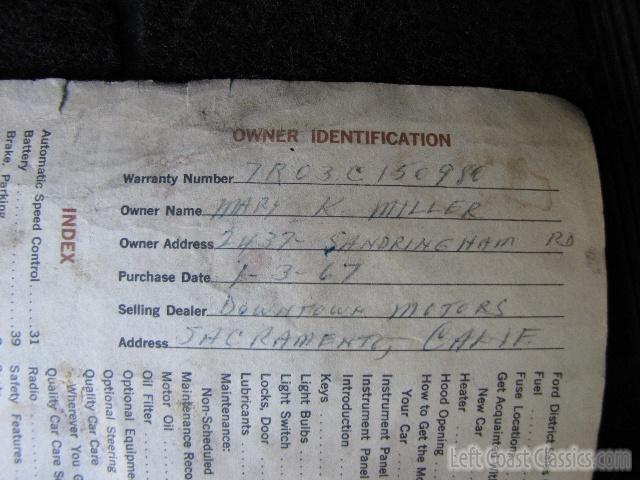 OWNER IDENTIFICATION
Warranty Number 7R03C150980
Owner Name MARY K MILLER
Owner Address 2437 SANDRINGHAM RD
Purchase Date 1-3-67
Selling Dealer DOWNTOWN MOTORS
Address SACRAMENTO, CALIF
INDEX
Automatic Speed Control ......31
Battery ..........39
Brake, Parking
Ford District
Fuel
Fuse Location
Get Acquaint
New Car
Heater
Hood Opening
How to Get the
Your Car
Instrument Panel
Instrument Panel
Introduction
Keys
Light Bulbs
Light Switch
Locks, Door
Lubricants
Maintenance:
Non-Scheduled
Maintenance
Motor Oil
Oil Filter
Optional Equipme
Optional Steering
Quality Car Care
Wherever You
Quality Car Care
Radio
Safety Features
Left Coast Classics.com